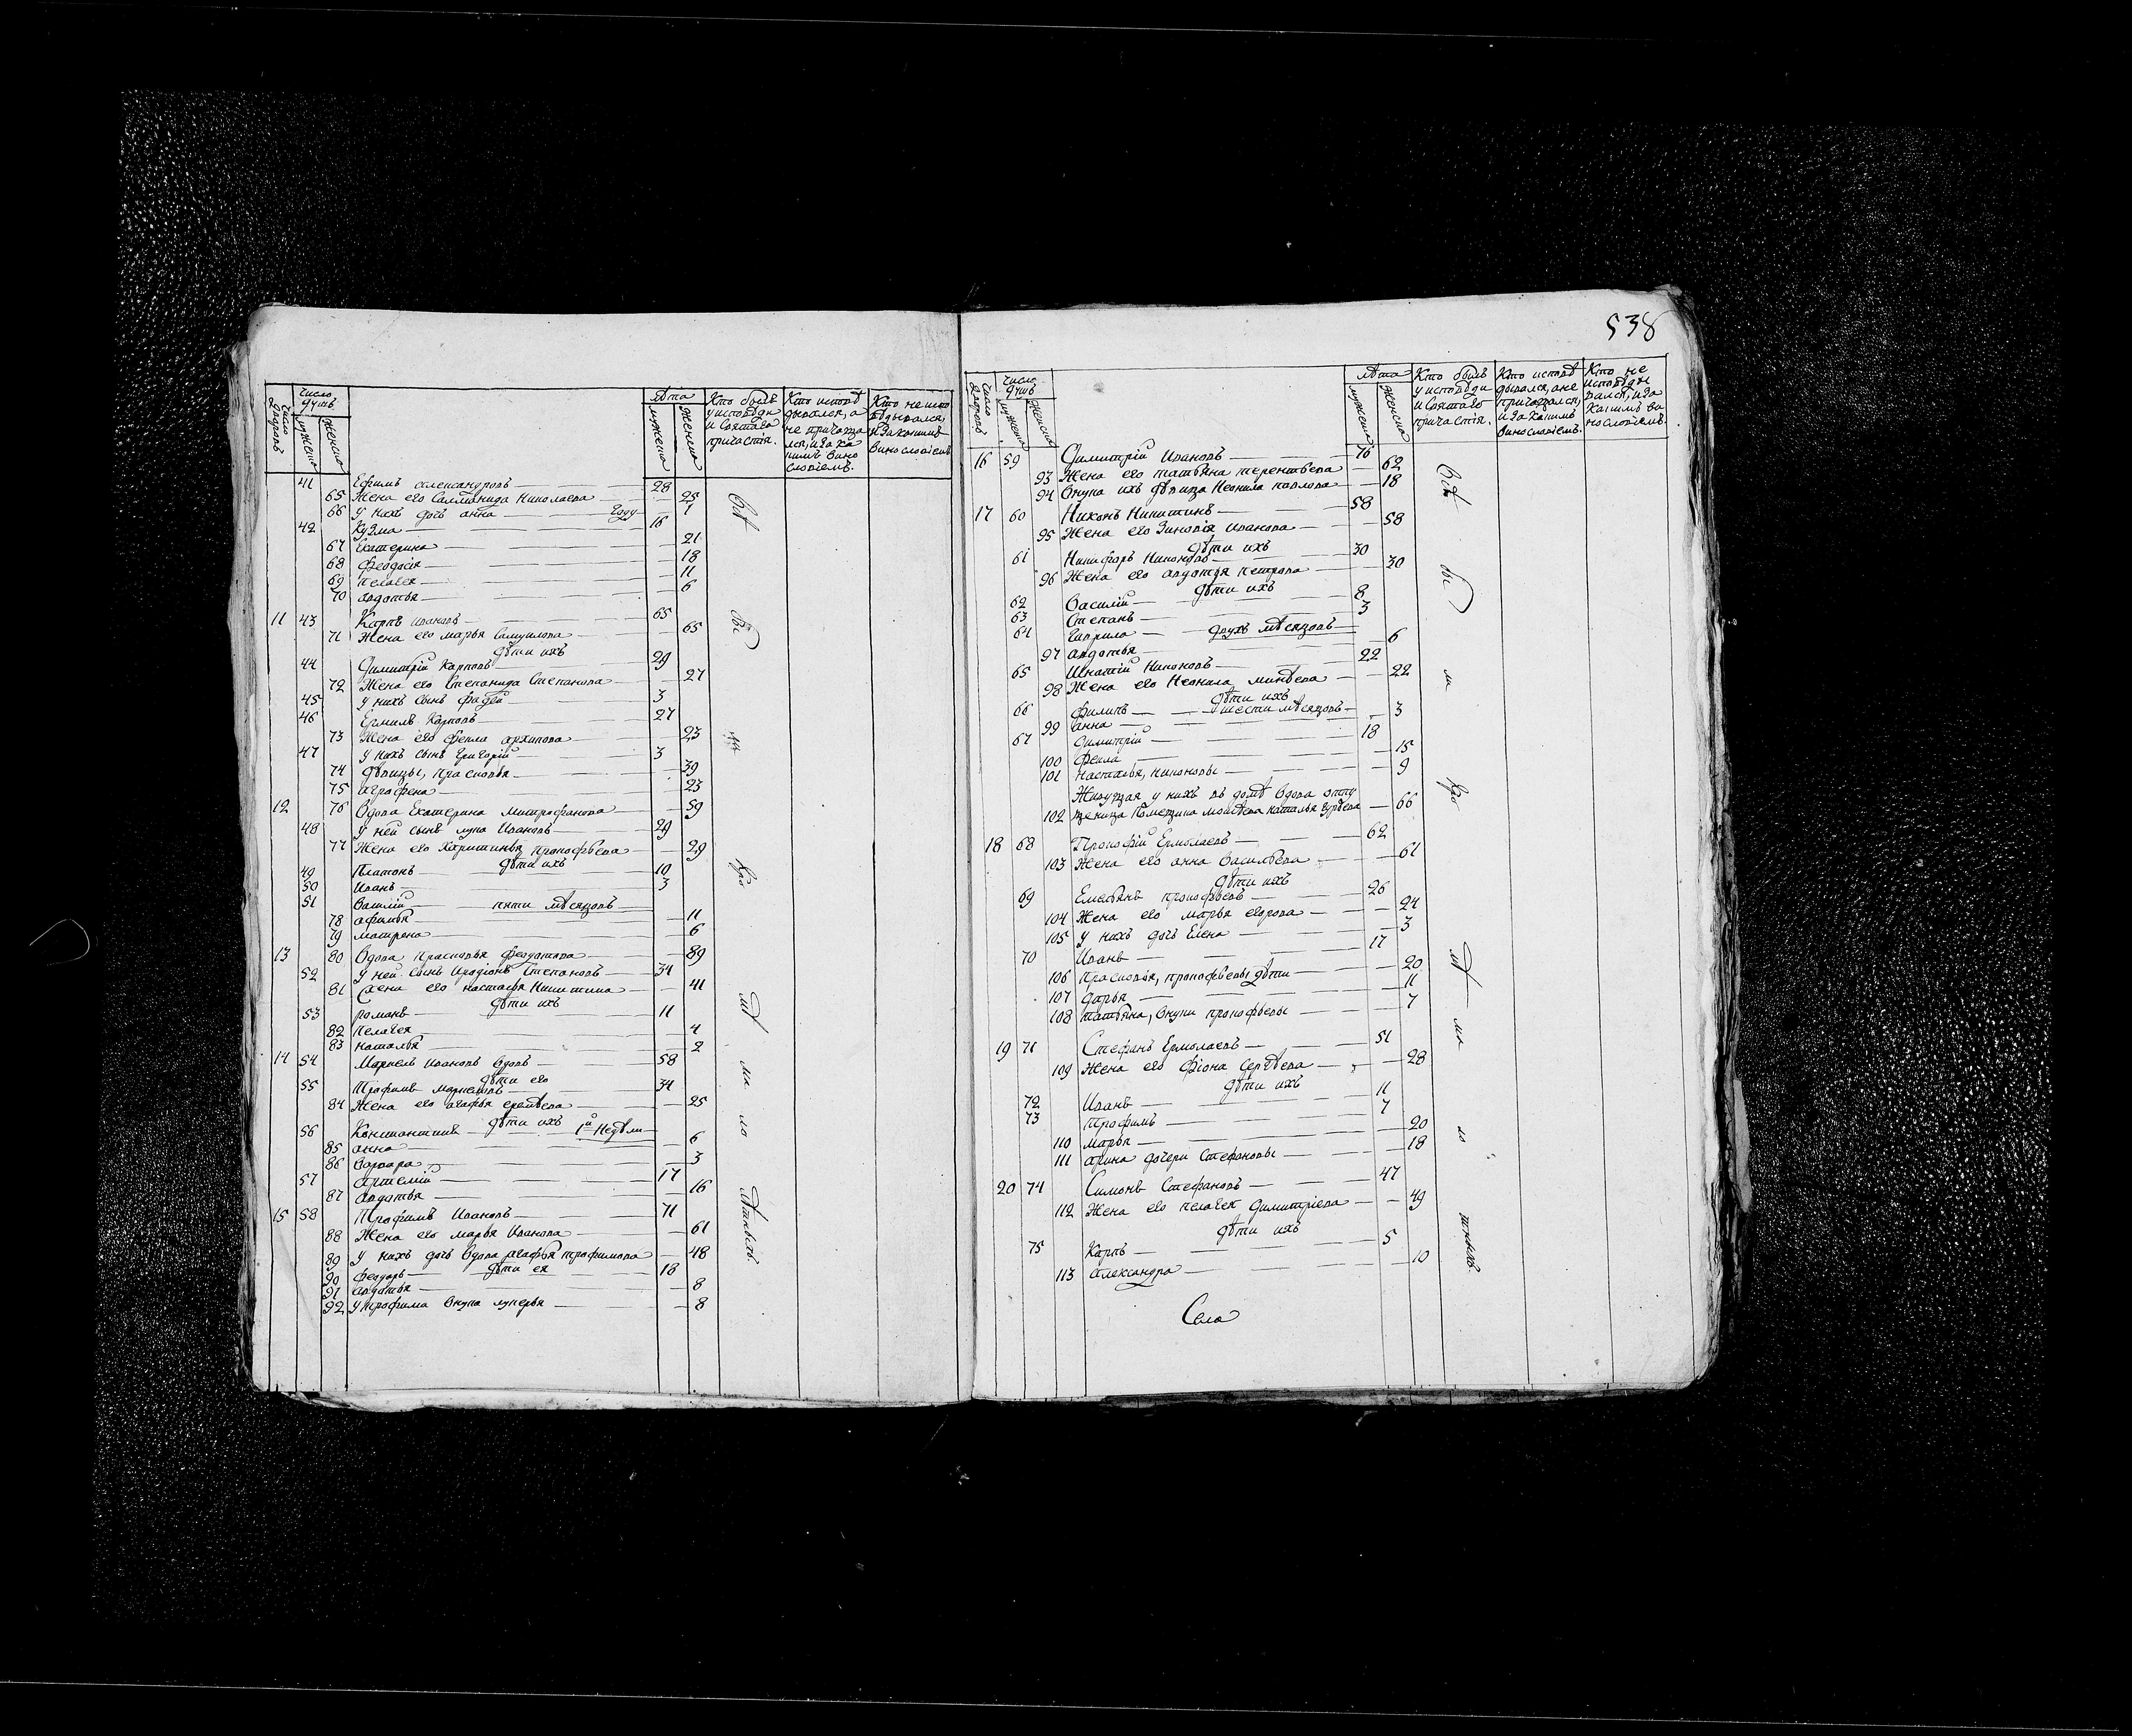 число дворовъ
число душъ
мужеска
женска
лѣта
мужеска
женска
Кто былъ у исповѣди и Святаго причастія.
Кто исповѣдывался, а не причащался, и за какимъ винословіемъ.
Кто не исповѣдывался, и за какимъ винословіемъ
41 Ефимъ Александровъ 28
65 Жена его Саламанида Николаева 25
66 У нихъ дочь Анна 1
42 Кузма 16
67 Екатерина 21
68 Феодосія 18
69 Пелагея 11
70 Авдотья 6
11 43 Карпъ Ивановъ 65
71 Жена его Марья Самуилова 65
дѣти ихъ
44 Димитрій Карповъ 29
72 Жена его Степанида Степанова 27
45 У нихъ сынъ Фадей 3
46 Ермилъ Карповъ 27
73 Жена его Фекла Архипова 23
47 У нихъ сынъ Григорій 3
74 дѣвицы, Прасковья 39
75 Аграфена 23
12 76 Вдова Екатерина Митрофанова 59
48 У ней сынъ Лука Ивановъ 29
77 Жена его Харитинья Прокофьева 29
дѣти ихъ
49 Платонъ 10
50 Иванъ 3
51 Василій пяти мѣсяцовъ
78 Афимья 11
79 Матрена 6
13 80 Вдова Прасковья Феодотова 89
52 У ней сынъ Иродіонъ Степановъ 34
81 Жена его Настасья Никитина 41
дѣти ихъ
53 Романъ 11
82 Пелагея 4
83 Наталья 2
14 54 Маркелъ Ивановъ вдовъ 58
дѣти его
55 Трофимъ Маркеловъ 34
84 Жена его Агафья Еремѣева 25
дѣти ихъ
56 Константинъ 1й недѣли
85 Анна 6
86 Варвара 3
57 Артемій 17
87 Авдотья 16
15 58 Трофимъ Ивановъ 71
88 Жена его Марья Иванова 61
89 У нихъ дочь вдова Агафья Трофимова 48
дѣти ея
90 Феодоръ 18
91 Авдотья 8
92 У Трофима внука Лукерья 8
всѣ были кромѣ малолѣтныхъ.
538
число дворовъ
число душъ
мужеска
женска
лѣта
мужеска
женска
Кто былъ у исповѣди и Святаго причастія.
Кто исповѣдывался, а не причащался, и за какимъ винословіемъ.
Кто не исповѣдывался, и за какимъ винословіемъ.
16 59 Димитрій Ивановъ 76
93 Жена его Татьяна Терентьева 62
94 Внука ихъ дѣвица Неонила Павлова 18
17 60 Никонъ Никитинъ 58
95 Жена его Зиновія Иванова 58
дѣти ихъ
61 Никифоръ Никоновъ 30
96 Жена его Авдотья Петрова 30
дѣти ихъ
62 Василій 8
63 Степанъ 3
64 Гаврила двухъ мѣсяцовъ
97 Авдотья 6
65 Игнатій Никоновъ 22
98 Жена его Неонила Минѣева 22
дѣти ихъ
66 Филипъ шести мѣсяцовъ
99 Анна 3
67 Димитрій 18
100 Фекла 15
101 Настасья, Никоновы 9
Живущая у нихъ въ домѣ вдова отпу
102 щеница помещика Моисѣева Наталья Гурьева 66
18 68 Прокофій Ермолаевъ 62
103 Жена его Анна Васильева 61
дѣти ихъ
69 Емельянъ Прокофьевъ 26
104 Жена его Марья Егорова 24
105 У нихъ дочь Елена 3
70 Иванъ 17
106 Прасковья, Прокофьевы дѣти 20
107 Дарья 11
108 Татьяна, внуки Прокофьевы 7
19 71 Стефанъ Ермолаевъ 51
109 Жена его Фіона Сергѣева 28
дѣти ихъ
72 Иванъ 11
73 Трофимъ 7
110 Марья 20
111 Арина дочери Стефановы 18
20 74 Симонъ Стефановъ 47
112 Жена его Пелагея Димитріева 49
дѣти ихъ
75 Карпъ 5
113 Александра 10
всѣ были кромѣ малолѣтныхъ.
Села